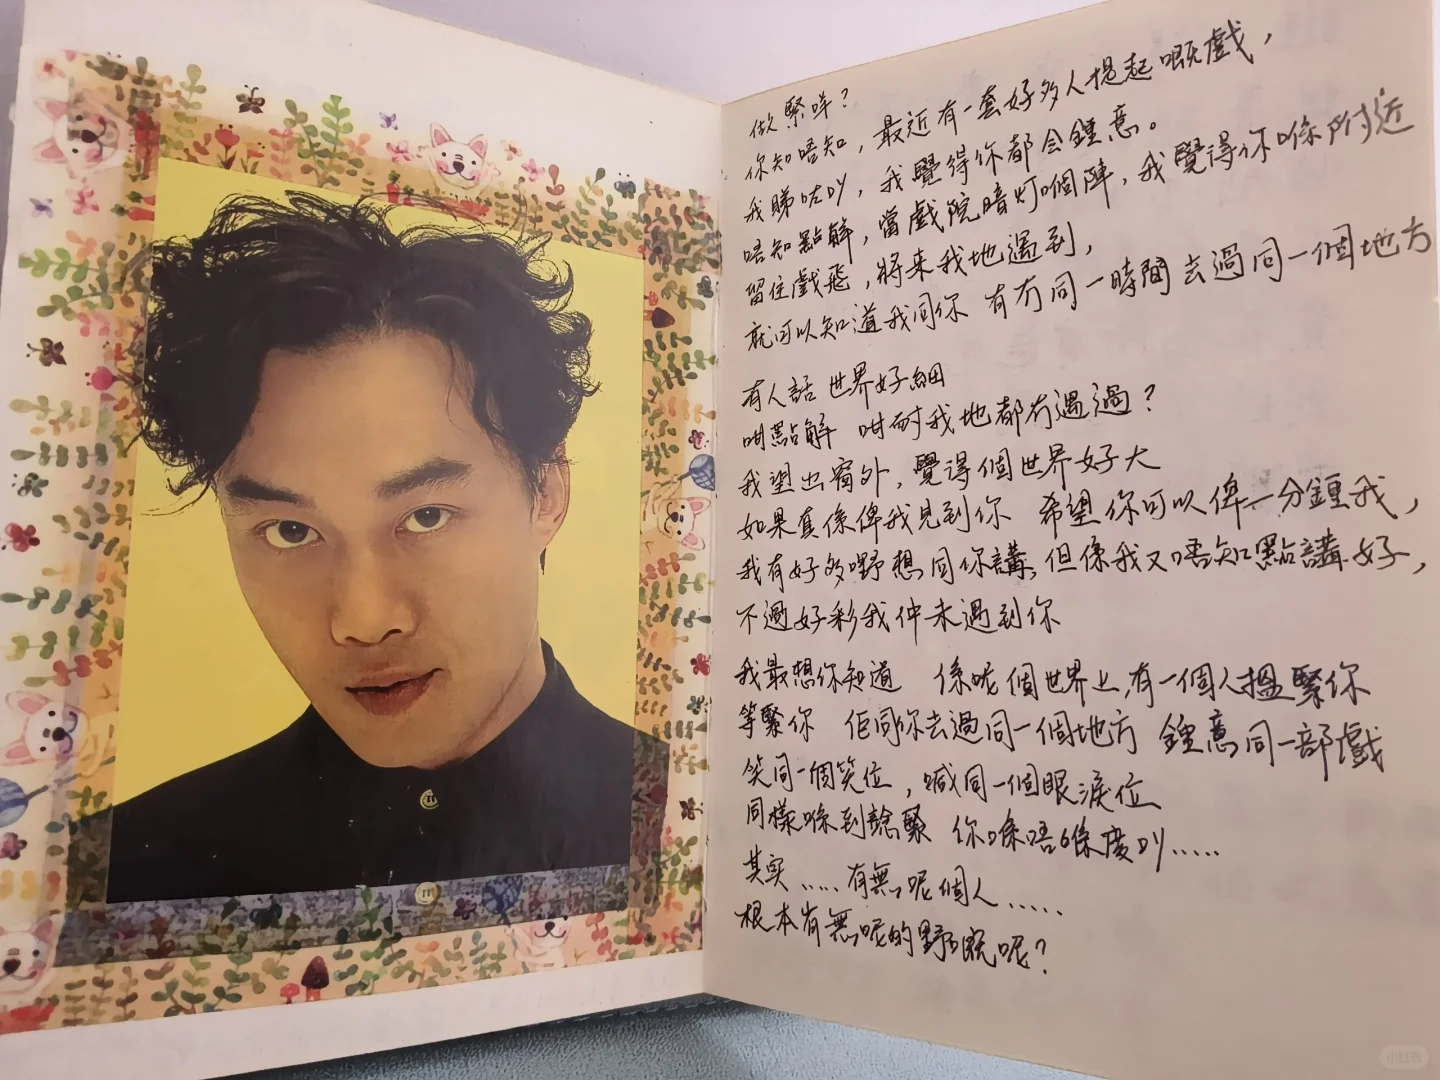 做緊咩？
你知唔知，最近有一套好多人提起嘅戲，
我睇咗叻，我覺得你都会鐘意。
唔知點解，當戲院暗灯嗰個陣，我覺得你喺附近
留住戲飛，將来我地遇到，
就可以知道我同你 有冇同一時間去過同一個地方
有人話 世界好細
咁點解 咁耐我地都冇遇過？
我望出窗外，覺得個世界好大
如果真係俾我見到你 希望你可以俾一分鐘我，
我有好多嘢想同你講，但係我又唔知點講好，
不過好彩我仲未遇到你
我最想你知道 係呢個世界上，有一個人搵緊你
等緊你 佢同你去過同一個地方 鐘意同一部戲
笑同一個笑位，喊同一個眼淚位
同樣喺到諗緊 你喺唔喺度叻.....
其实.....有無呢個人.....
根本有無呢的野㗎呢？
小红书